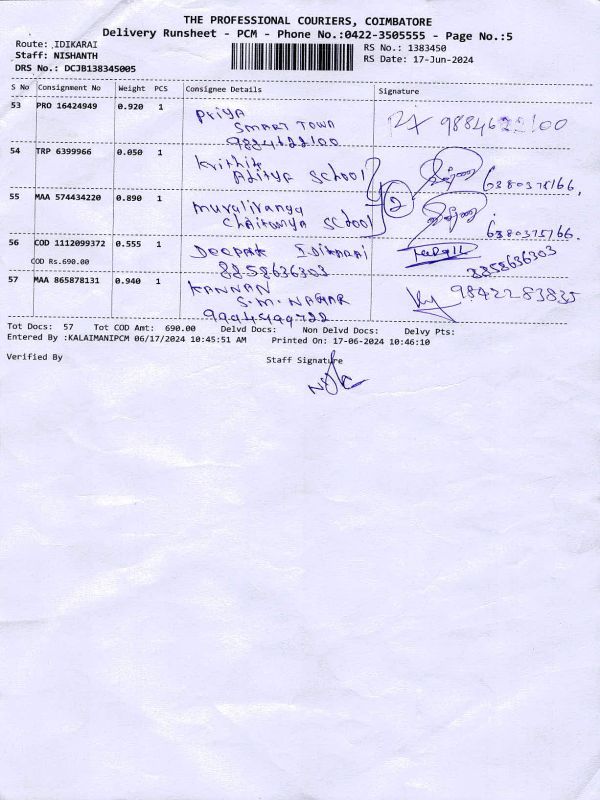 THE PROFESSIONAL COURIERS, COIMBATORE
Delivery Runsheet - PCM - Phone No.:0422-3505555 - Page No.:5
Route: IDIKARAI
Staff: NISHANTH
DRS No.: DCJB138345005
RS No.: 1383450
RS Date: 17-Jun-2024
S No Consignment No Weight PCS Consignee Details Signature
53 PRO 16424949 0.920 1 Priya
SMART TOWN
9884622100
9884622100
54 TRP 6399966 0.050 1 Krithik
Aditya School
2
6380375766.
55 MAA 574434220 0.890 1
Chaitanya School
6380375766.
56 COD 1112099372 0.555 1 Deepak Idikarai
COD Rs.690.00 8858636303
8858636303
57 MAA 865878131 0.940 1 KANNAN
S.M. NAGAR
9842283835
Tot Docs: 57 Tot COD Amt: 690.00 Delvd Docs: Non Delvd Docs: Delvy Pts:
Entered By :KALAIMANIPCM 06/17/2024 10:45:51 AM Printed On: 17-06-2024 10:46:10
Verified By Staff Signature